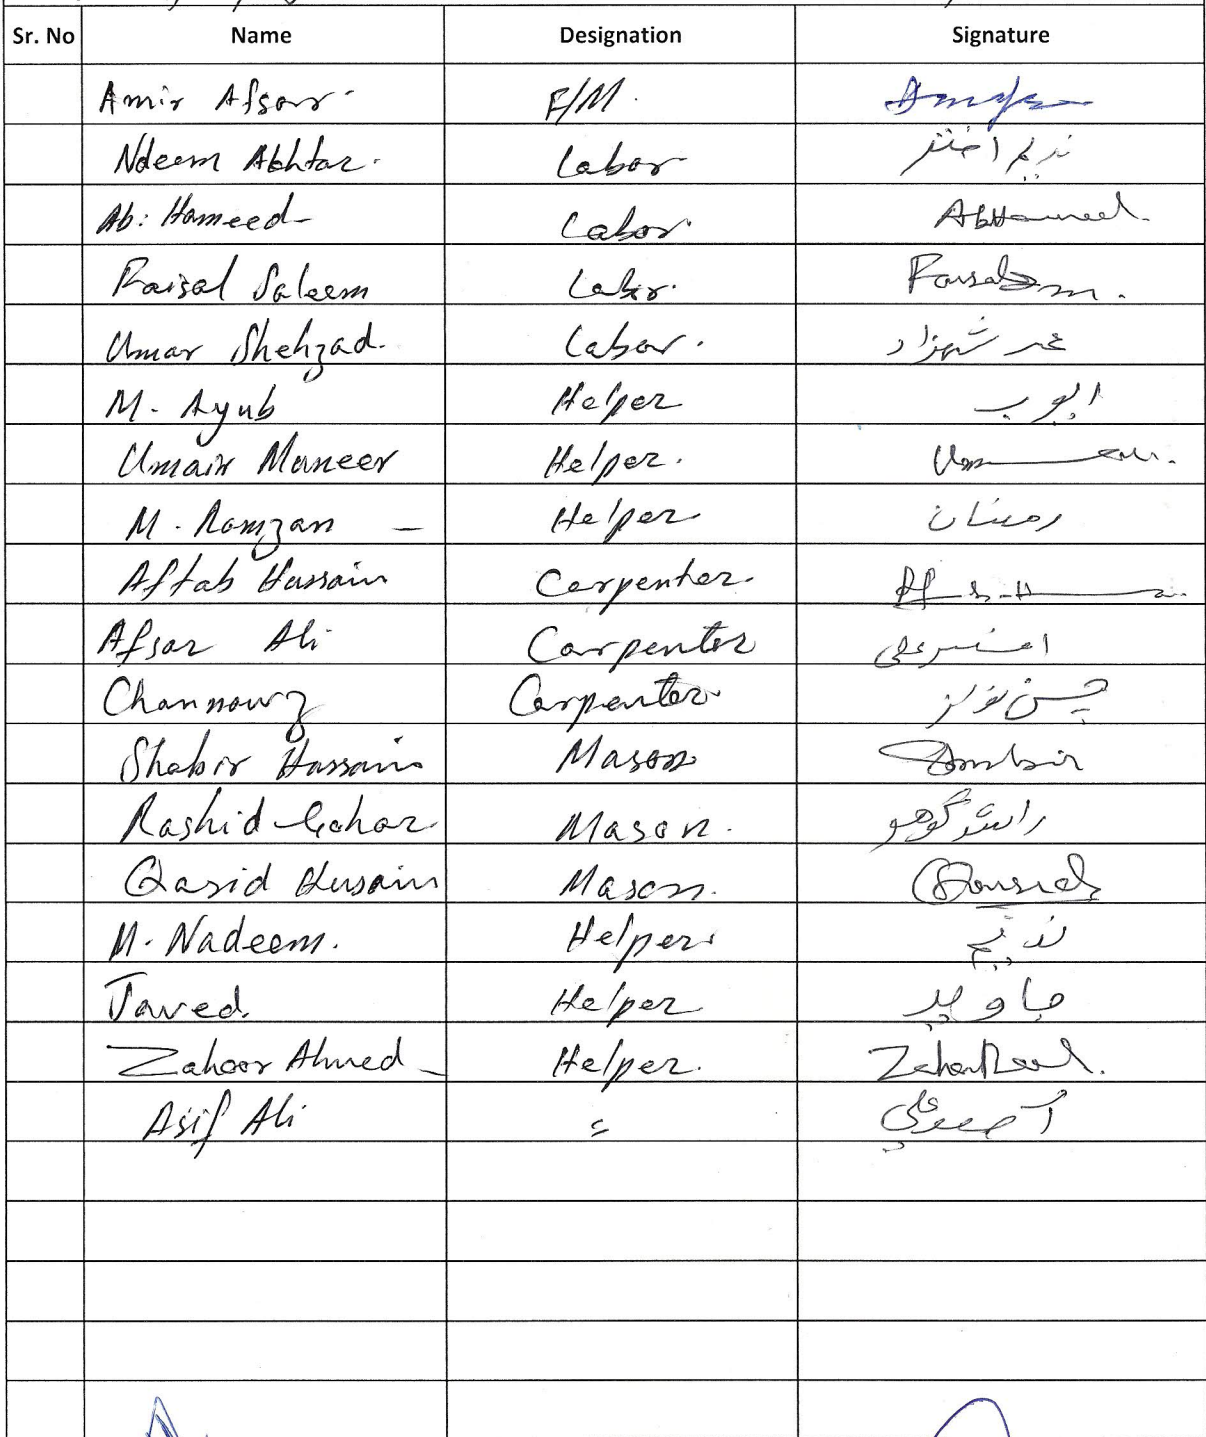 Sr. No Name Designation Signature
Amir Afsar F/M.
Ndeem Akhtar. Labor ندیم اختر
Ab: Hameed- Labor. AbHameed.
Faisal Saleem Labor.
Umar Shehzad. Labor. عمر شہزاد
M. Ayub Helper ایوب
Umair Muneer Helper.
M. Ramzan - Helper رمضان
Aftab Hussain Carpenter.
Afsar Ali Carpenter افسر علی
Channawz Carpenter چن نواز
Shabir Hussain Mason Shabir
Rashid Gohar Mason. راشد گوهر
Qasid Husain Mason.
M. Nadeem. Helper ندیم
Javed Helper جاوید
Zahoor Ahmed - Helper.
Asif Ali آصف علی